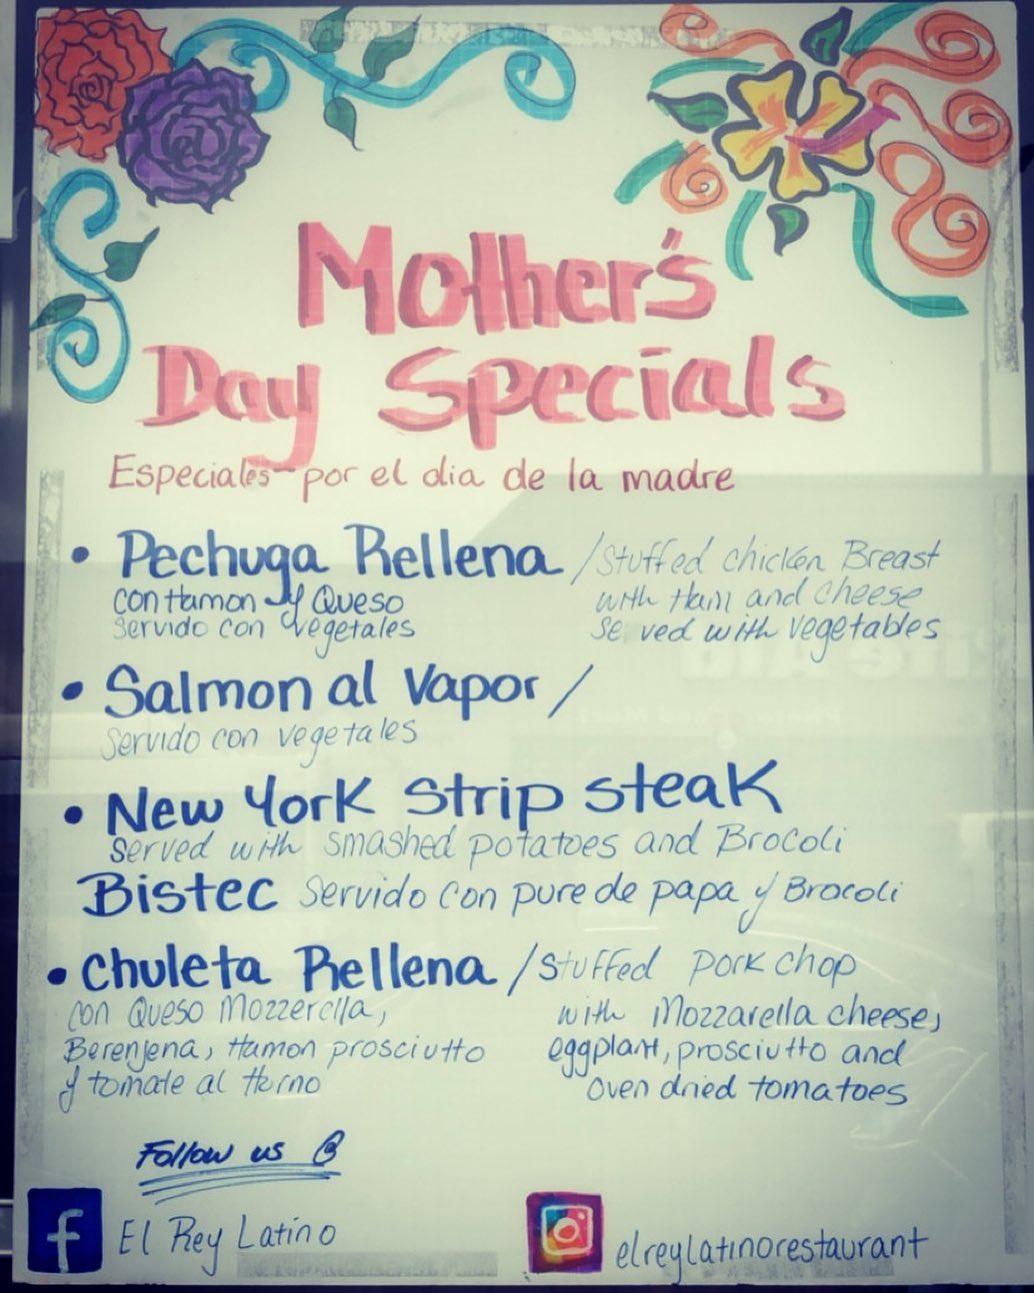 Mother's
Day Specials
Especiales por el dia de la madre
• Pechuga Rellena / Stuffed chicken Breast
con Hamon y Queso with Ham and cheese
servido con vegetales served with vegetables
• Salmon al vapor /
servido con vegetales
• New York Strip steak
served with smashed potatoes and Brocoli
Bistec servido con pure de papa y Brocoli
• Chuleta Rellena / Stuffed pork chop
con Queso Mozzerella, with Mozzarella cheese,
Berenjena, Hamon prosciutto eggplant, prosciutto and
y tomate al Horno oven dried tomatoes
Follow us @
f El Rey Latino elreylatinorestaurant